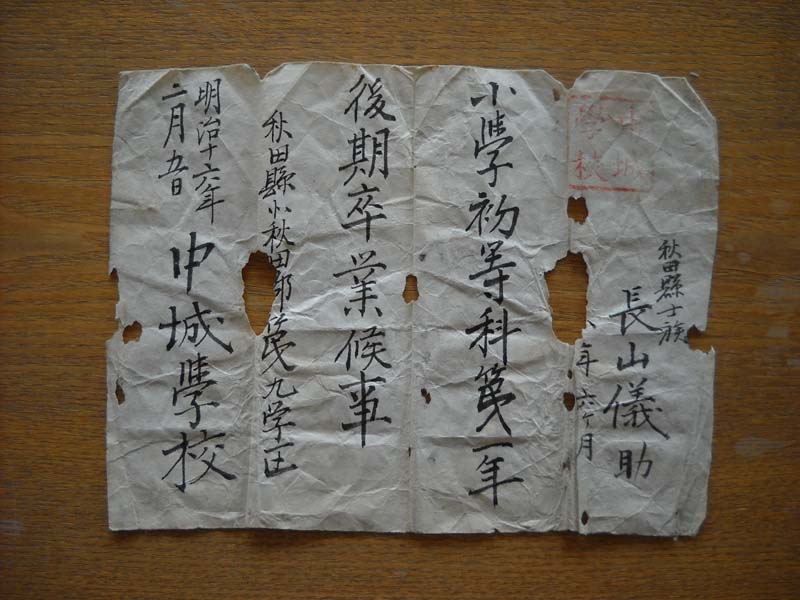 中城
學校
秋田縣士族
長山儀助
年六ケ月
小學初等科第一年
後期卒業候事
秋田縣小秋田郡第九学区
明治十六年
二月五日
中城學校